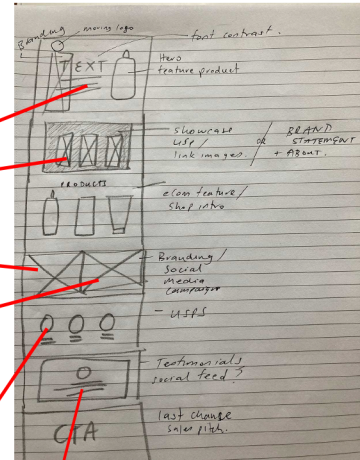 Branding
moving logo
font contrast.
TEXT
Hero
feature product
showcase
USP /
link images.
OR BRAND
STATEMENT
+ ABOUT.
PRODUCTS
ecom feature /
Shop intro
Branding /
Social
Media
Campaign
- USPS
Testimonials
social feed?
CTA
last chance
sales pitch.